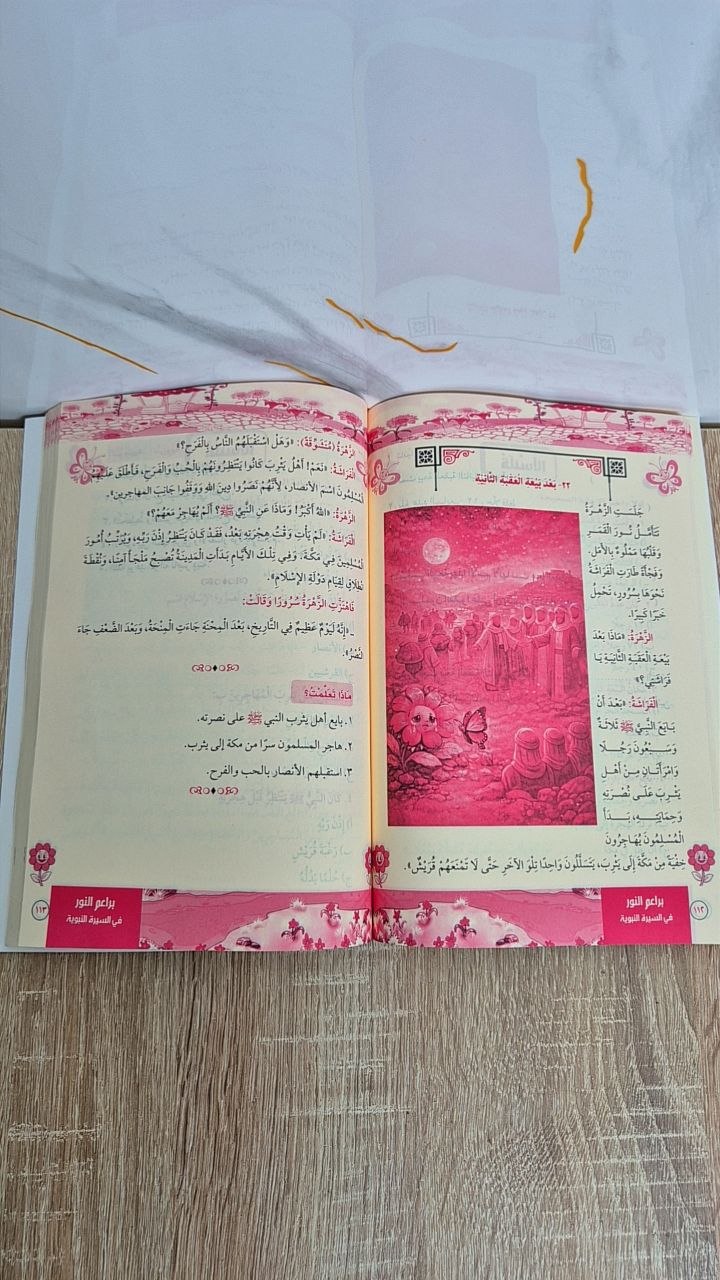 ٢٢- بَعْدَ بَيْعَةِ العَقَبَةِ الثَّانِيَةِ
جَلَسَتِ الزَّهْرَةُ
تَتَأَمَّلُ نُورَ القَمَرِ
وَقَلْبُهَا مَمْلُوءٌ بِالأَمَلِ.
وَفَجْأَةً طَارَتِ الفَرَاشَةُ
نَحْوَهَا بِسُرُورٍ، تَحْمِلُ
خَبَرًا كَبِيرًا.
الزَّهْرَةُ: «مَاذَا بَعْدَ
بَيْعَةِ العَقَبَةِ الثَّانِيَةِ يَا
فَرَاشَتِي؟»
الفَرَاشَةُ: «بَعْدَ أَنْ
بَايَعَ النَّبِيَّ ﷺ ثَلَاثَةٌ
وَسَبْعُونَ رَجُلًا
وَامْرَأَتَانِ مِنْ أَهْلِ
يَثْرِبَ عَلَى نُصْرَتِهِ
وَحِمَايَتِهِ، بَدَأَ
المُسْلِمُونَ يُهَاجِرُونَ
خِفْيَةً مِنْ مَكَّةَ إِلَى يَثْرِبَ، يَتَسَلَّلُونَ وَاحِدًا تِلْوَ الآخَرِ حَتَّى لَا تَمْنَعَهُمْ قُرَيْشٌ».
براعم النور
في السيرة النبوية
١١٢
الزَّهْرَةُ (مُتَشَوِّقَةً): «وَهَلْ اسْتَقْبَلَهُمُ النَّاسُ بِالفَرَحِ؟»
الفَرَاشَةُ: «نَعَمْ! أَهْلُ يَثْرِبَ كَانُوا يَنْتَظِرُونَهُمْ بِالحُبِّ وَالفَرَحِ، فَأَطْلَقَ عَلَيْهِمُ
المُسْلِمُونَ اسْمَ الأَنْصَارِ، لِأَنَّهُمْ نَصَرُوا دِينَ اللهِ وَوَقَفُوا جَانِبَ المهاجرين».
الزَّهْرَةُ: «اللهُ أَكْبَرُ! وَمَاذَا عَنِ النَّبِيِّ ﷺ؟ أَلَمْ يُهَاجِرْ مَعَهُمْ؟»
الفَرَاشَةُ: «لَمْ يَأْتِ وَقْتُ هِجْرَتِهِ بَعْدُ، فَقَدْ كَانَ يَنْتَظِرُ إِذْنَ رَبِّهِ، وَيُرَتِّبُ أُمُورَ
المُسْلِمِينَ فِي مَكَّةَ، وَفِي تِلْكَ الأَيَّامِ بَدَأَتِ المَدِينَةُ تُصْبِحُ مَلْجَأً آمِنًا، وَنُقْطَةَ
انْطِلَاقٍ لِقِيَامِ دَوْلَةِ الإِسْلَامِ».
فَاهْتَزَّتِ الزَّهْرَةُ سُرُورًا وَقَالَتْ:
ـ «إِنَّهُ لَيَوْمٌ عَظِيمٌ فِي التَّارِيخِ، بَعْدَ المِحْنَةِ جَاءَتِ المِنْحَةُ، وَبَعْدَ الضَّعْفِ جَاءَ
النَّصْرُ».
مَاذَا تَعَلَّمْتَ؟
١. بايع أهل يثرب النبي ﷺ على نصرته.
٢. هاجر المسلمون سرًا من مكة إلى يثرب.
٣. استقبلهم الأنصار بالحب والفرح.
براعم النور
في السيرة النبوية
١١٣